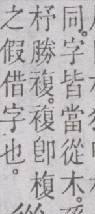 同。字皆當從木。
杼勝複。複卽椱
之假借字也。